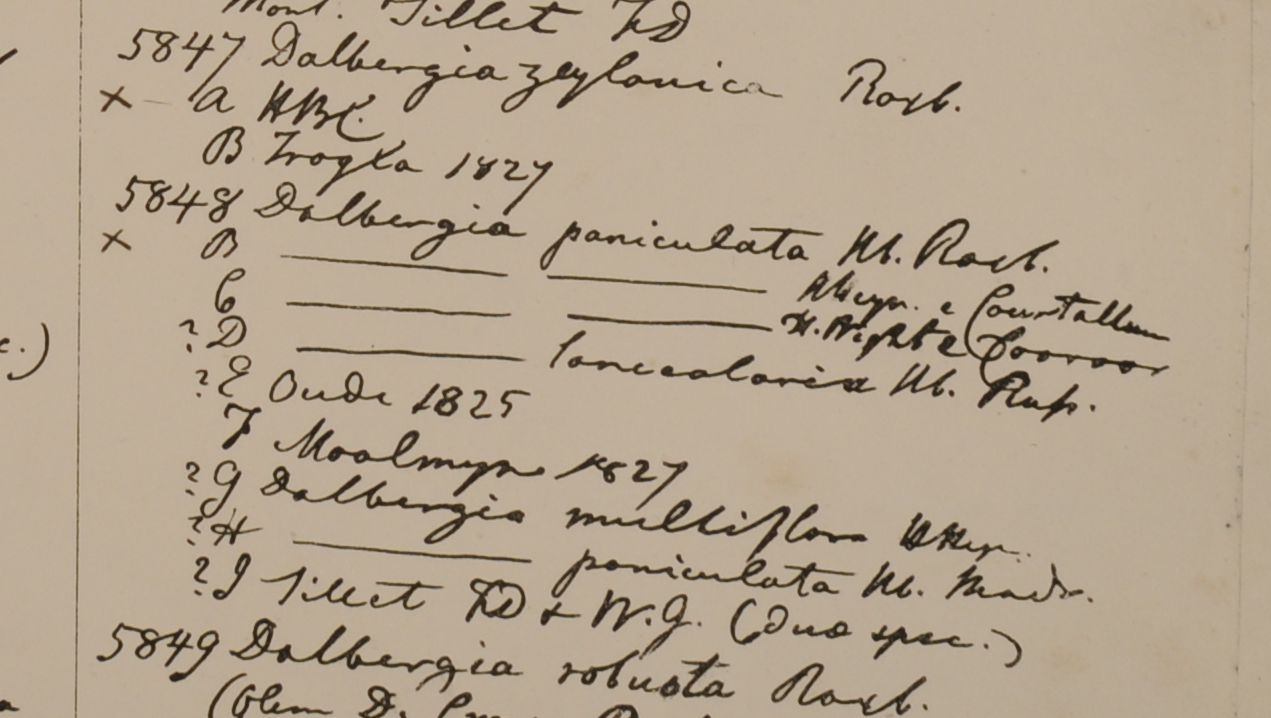 Mont. Sillet FD
5847 Dalbergia zeylanica Roxb.
× a HBC.
B Trogla 1827
5848 Dalbergia paniculata Hb. Roxb.
× B ——— ——— Hheyn. e Courtallum
C ——— ——— H. Wight e
? D ——— lanceolaria Hb. Rup.
? E Oude 1825
F Moalmyn 1827
? G Dalbergia multiflora HHeyn.
? H ——— paniculata Hb. Madr.
? I Sillet FD & W.G. (Duo spec.)
5849 Dalbergia robusta Roxb.
c.)